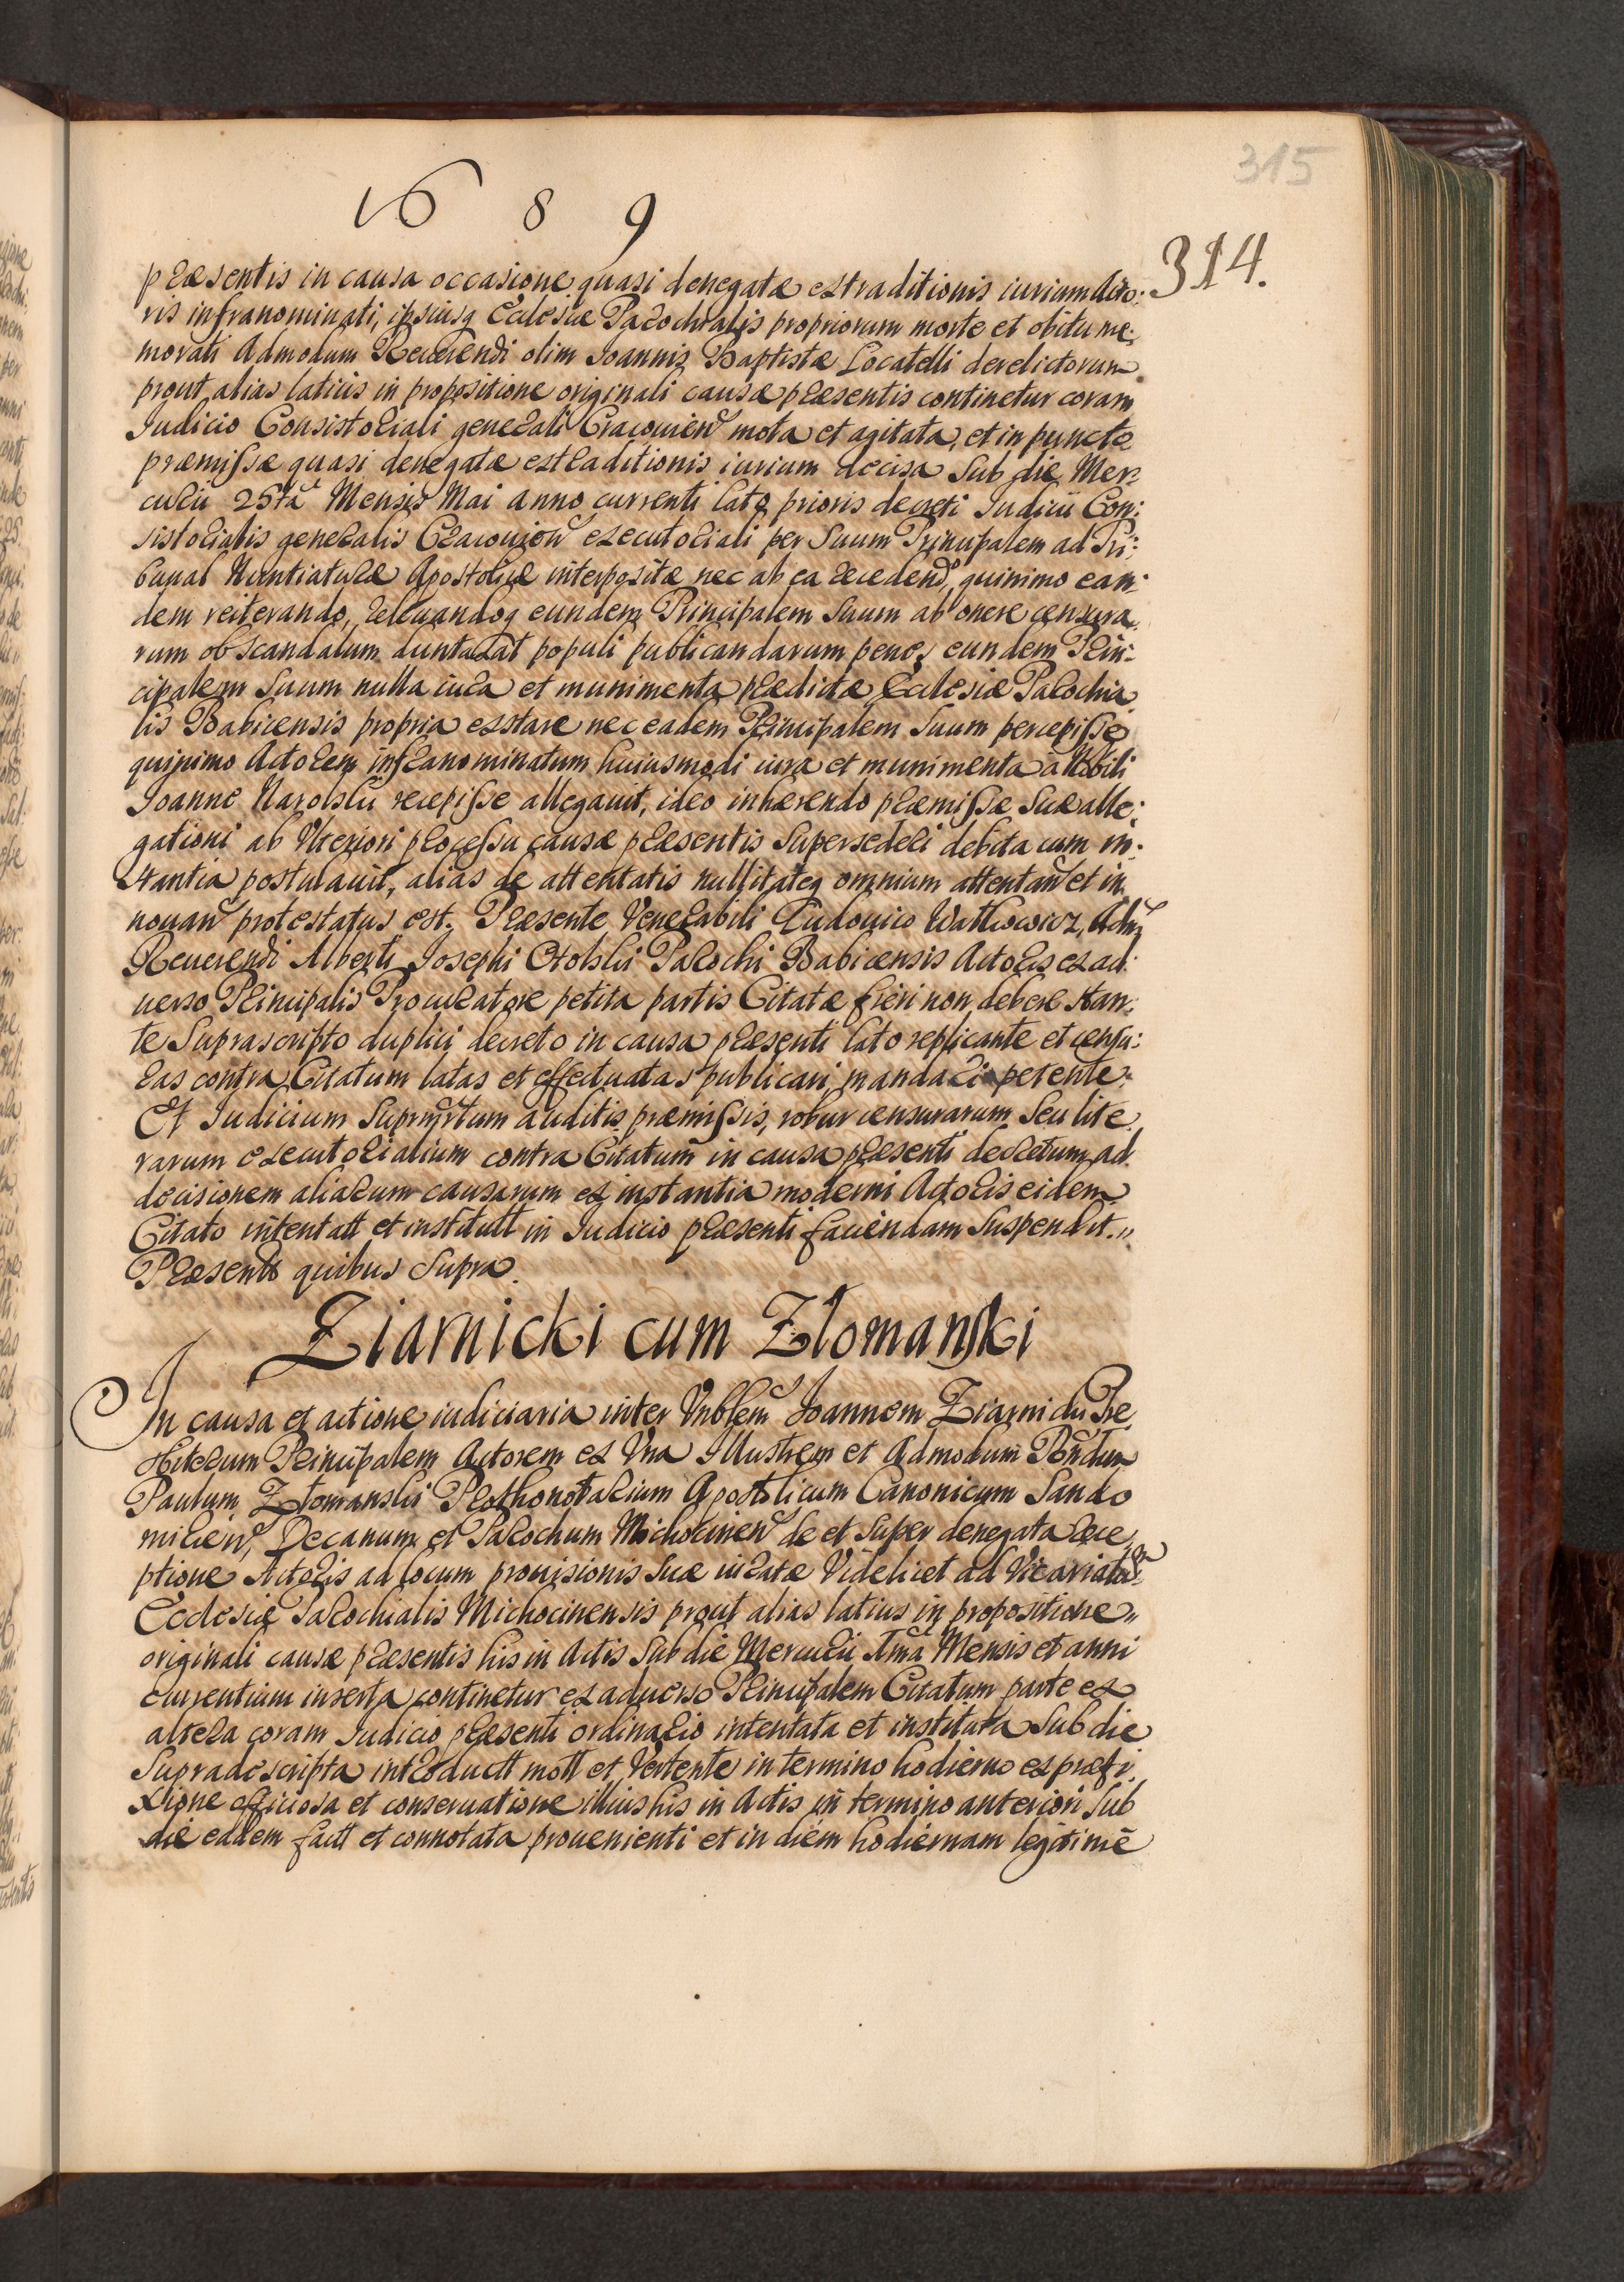 315
1689
314.
præsentis in causa occasione quasi denegatæ extraditionis iurium Acto:
ris infranominati, ipsiusq Ecclesiæ Parochialis propriorum morte et obitu me
morati Admodum Reuerendi olim Ioannis Baptistæ Locatelli derelictorum
prout alias latius in propositione originali causæ præsentis continetur coram
Iudicio Consistoriali generali Cracouien mota et agitata, et in puncto
præmissæ quasi denegatæ extraditionis iurium decisa sub die Mer:
curii 25ta Mensis Mai anno currenti lato prioris decreti Iudicii Con:
sistorialis generalis Cracouien executoriali per Suum Principalem ad Tri:
bunal Nuntiaturæ Apostolicæ interpositæ nec ab ea recedend, quinimo ean:
dem reiterando, releuandoq eundem Principalem Suum ab onere censura
rum ob scandalum duntaxat populi publicandarum penes eundem Prin:
cipalem Suum nulla iura et munimenta prædictæ Ecclesiæ Parochia
lis Babicensis propria exstare nec eadem Principalem Suum percepisse
quinimo Actorem infranominatum huiusmodi iura et munimenta a Nobili
Ioanne Narolski recepisse allegauit, ideo inhærendo præmissæ Suæ alle:
gationi ab Vlteriori processu causæ præsentis Supersederi debita cum in:
stantia postulauit, alias de attentatis nullitateq omnium attentan et in
nouan protestatus est. Præsente Venerabili Ludouico Watkowicz, Adm
Reuerendi Alberti Iosephi Otolski Parochi Babicensis Actoris ex ad:
uerso Principalis Procuratore petita partis Citatæ fieri non debere stan:
te Suprascripto duplici decreto in causa præsenti lato replicante et censu:
ras contra Citatum latas et effectuatas publicari mandari petente:
Et Iudicium Suprmrtum auditis præmissis, robur censurarum Seu lite
rarum executorialium contra Citatum in causa præsenti decretum ad
decisionem aliarum causarum ex instantia moderni Actoris eidem
Citato intentatt et institutt in Iudicio præsenti faciendam Suspendit.
Præsentt quibus Supra.
Ziarnicki cum Złomanski
In causa et actione iudiciaria inter Vnblem Ioannem Ziarnicki Pre
sbiterum Principalem Actorem ex Vna Illustrem et Admodum Rendum
Paulum Złomanski Prothonotarium Apostolicum Canonicum Sando
mirien, Decanum et Parochum Michocinen de et Super denegata rece
ptione Actoris ad locum prouisionis Suæ iuratæ Videlicet ad Vicariatum
Ecclesiæ Parochialis Michocinensis prout alias latius in propositione
originali causæ præsentis his in Actis Sub die Mercurii Ima Mensis et anni
currentium inserta continetur ex aduerso Principalem Citatum parte ex
altera coram Iudicio præsenti ordinario intentata et instituta Sub die
Supradescripta introductt mott et Vertente in termino hodierno ex præfi
xione officiosa et conseruatione illius his in Actis in termino anteriori Sub
die eadem factt et connotata prouenienti et in diem hodiernam legitimè